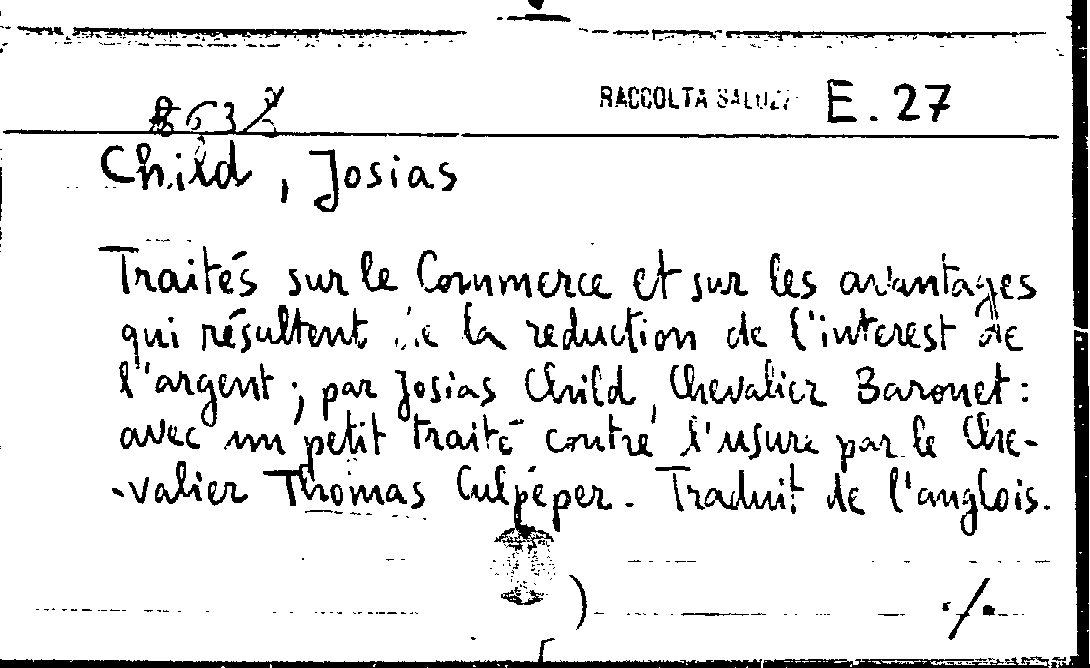 RACCOLTA SALUZZO E. 27
Child, Josias
Traités sur le Commerce et sur les avantages
qui résultent de la reduction de l'interest de
l'argent; par Josias Child, Chevalier Baronet:
avec un petit traité contre l'usure par le Che-
-valier Thomas Culpeper. Traduit de l'anglois.
./.